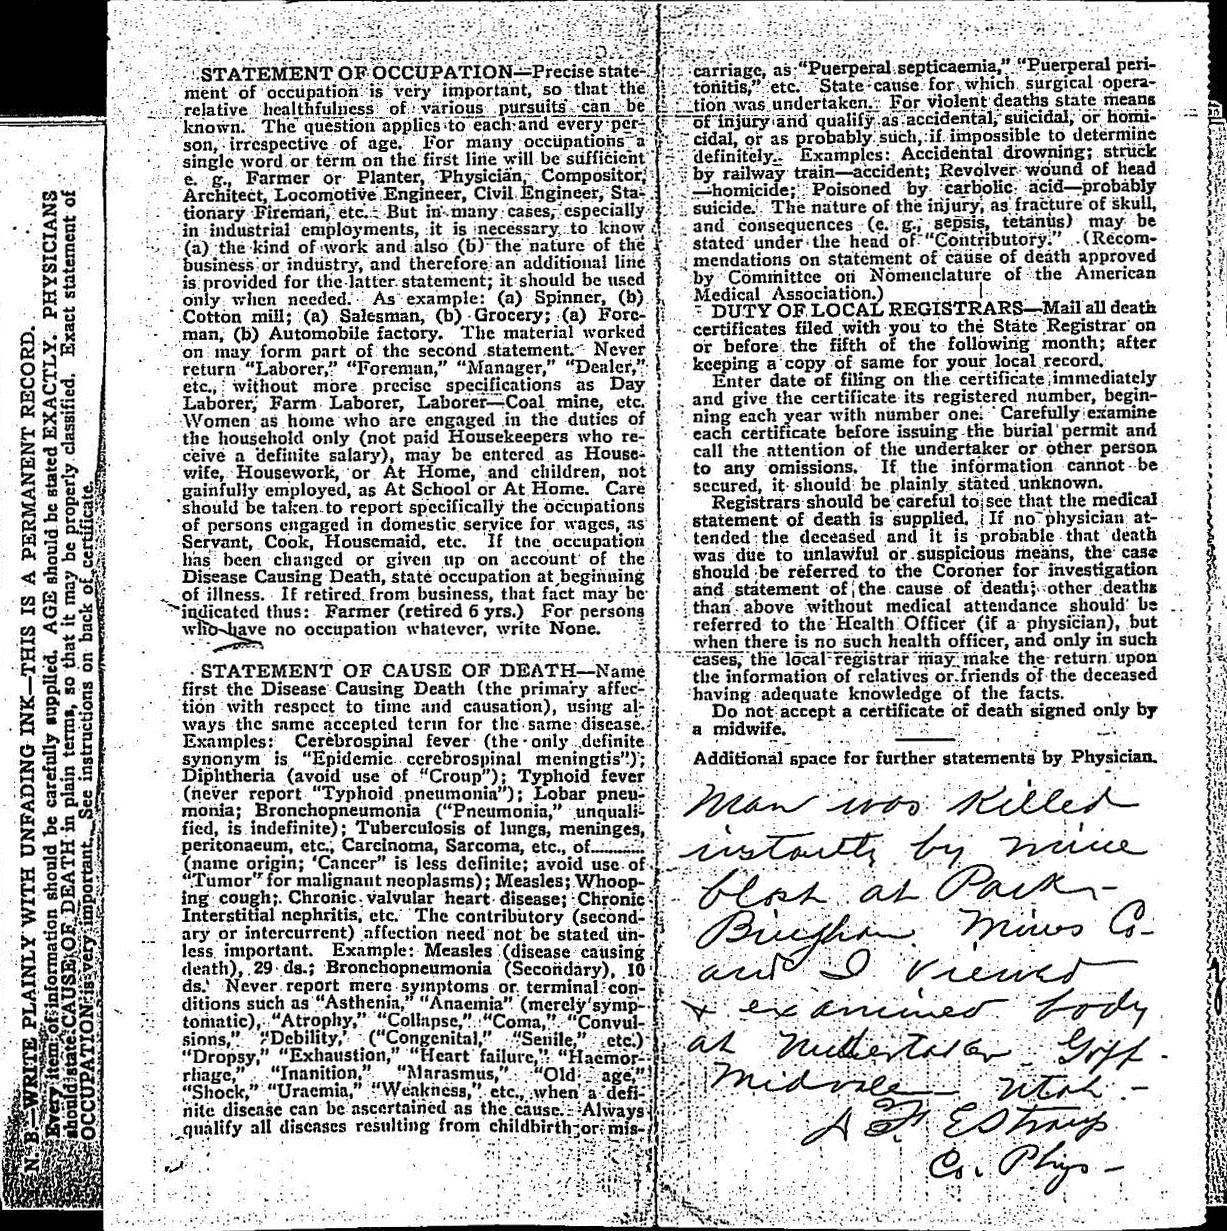 N. B.—WRITE PLAINLY WITH UNFADING INK—THIS IS A PERMANENT RECORD.
Every item of information should be carefully supplied. AGE should be stated EXACTLY. PHYSICIANS
should state CAUSE OF DEATH in plain terms, so that it may be properly classified. Exact statement of
OCCUPATION is very important. See instructions on back of certificate.
STATEMENT OF OCCUPATION—Precise state-
ment of occupation is very important, so that the
relative healthfulness of various pursuits can be
known. The question applies to each and every per-
son, irrespective of age. For many occupations a
single word or term on the first line will be sufficient
e. g., Farmer or Planter, Physician, Compositor,
Architect, Locomotive Engineer, Civil Engineer, Sta-
tionary Fireman, etc. But in many cases, especially
in industrial employments, it is necessary to know
(a) the kind of work and also (b) the nature of the
business or industry, and therefore an additional line
is provided for the latter statement; it should be used
only when needed. As example: (a) Spinner, (b)
Cotton mill; (a) Salesman, (b) Grocery; (a) Fore-
man, (b) Automobile factory. The material worked
on may form part of the second statement. Never
return "Laborer," "Foreman," "Manager," "Dealer,"
etc., without more precise specifications as Day
Laborer, Farm Laborer, Laborer—Coal mine, etc.
Women as home who are engaged in the duties of
the household only (not paid Housekeepers who re-
ceive a definite salary), may be entered as House-
wife, Housework, or At Home, and children, not
gainfully employed, as At School or At Home. Care
should be taken to report specifically the occupations
of persons engaged in domestic service for wages, as
Servant, Cook, Housemaid, etc. If the occupation
has been changed or given up on account of the
Disease Causing Death, state occupation at beginning
of illness. If retired from business, that fact may be
indicated thus: Farmer (retired 6 yrs.) For persons
who have no occupation whatever, write None.
STATEMENT OF CAUSE OF DEATH—Name
first the Disease Causing Death (the primary affec-
tion with respect to time and causation), using al-
ways the same accepted term for the same disease.
Examples: Cerebrospinal fever (the only definite
synonym is "Epidemic cerebrospinal meningtis");
Diphtheria (avoid use of "Croup"); Typhoid fever
(never report "Typhoid pneumonia"); Lobar pneu-
monia; Bronchopneumonia ("Pneumonia," unquali-
fied, is indefinite); Tuberculosis of lungs, meninges,
peritonaeum, etc., Carcinoma, Sarcoma, etc., of..........
(name origin; 'Cancer" is less definite; avoid use of
"Tumor" for malignant neoplasms); Measles; Whoop-
ing cough; Chronic valvular heart disease; Chronic
Interstitial nephritis, etc. The contributory (second-
ary or intercurrent) affection need not be stated un-
less important. Example: Measles (disease causing
death), 29 ds.; Bronchopneumonia (Secondary), 10
ds. Never report mere symptoms or terminal con-
ditions such as "Asthenia," "Anaemia" (merely symp-
tomatic), "Atrophy," "Collapse," "Coma," "Convul-
sions," "Debility," ("Congenital," "Senile," etc.)
"Dropsy," "Exhaustion," "Heart failure," "Haemor-
rhage," "Inanition," "Marasmus," "Old age,"
"Shock," "Uraemia," "Weakness," etc., when a defi-
nite disease can be ascertained as the cause. Always
qualify all diseases resulting from childbirth or mis-
carriage, as "Puerperal septicaemia," "Puerperal peri-
tonitis," etc. State cause for which surgical opera-
tion was undertaken. For violent deaths state means
of injury and qualify as accidental, suicidal, or homi-
cidal, or as probably such, if impossible to determine
definitely. Examples: Accidental drowning; struck
by railway train—accident; Revolver wound of head
—homicide; Poisoned by carbolic acid—probably
suicide. The nature of the injury, as fracture of skull,
and consequences (e. g., sepsis, tetanus) may be
stated under the head of "Contributory." (Recom-
mendations on statement of cause of death approved
by Committee on Nomenclature of the American
Medical Association.)
DUTY OF LOCAL REGISTRARS—Mail all death
certificates filed with you to the State Registrar on
or before the fifth of the following month; after
keeping a copy of same for your local record.
Enter date of filing on the certificate immediately
and give the certificate its registered number, begin-
ning each year with number one. Carefully examine
each certificate before issuing the burial permit and
call the attention of the undertaker or other person
to any omissions. If the information cannot be
secured, it should be plainly stated unknown.
Registrars should be careful to see that the medical
statement of death is supplied. If no physician at-
tended the deceased and it is probable that death
was due to unlawful or suspicious means, the case
should be referred to the Coroner for investigation
and statement of the cause of death; other deaths
than above without medical attendance should be
referred to the Health Officer (if a physician), but
when there is no such health officer, and only in such
cases, the local registrar may make the return upon
the information of relatives or friends of the deceased
having adequate knowledge of the facts.
Do not accept a certificate of death signed only by
a midwife.
Additional space for further statements by Physician.
Man was Killed
instantly by mine
blast at Park-
Bingham Mines Co-
and I viewed
& examined body
at Undertaker Goff-
Midvale Utah-
Co. Phys-